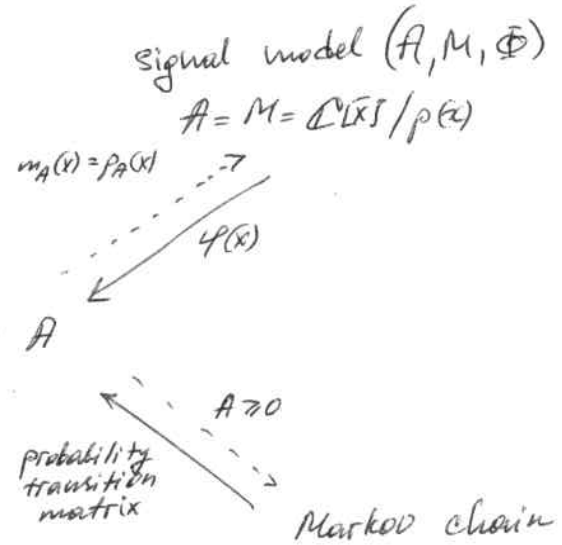 signal model (A, M, Φ)
A = M = ℂ[x]/p(x)
m_A(x) = p_A(x)
φ(x)
A
A ≥ 0
probability
transition
matrix
Markov chain